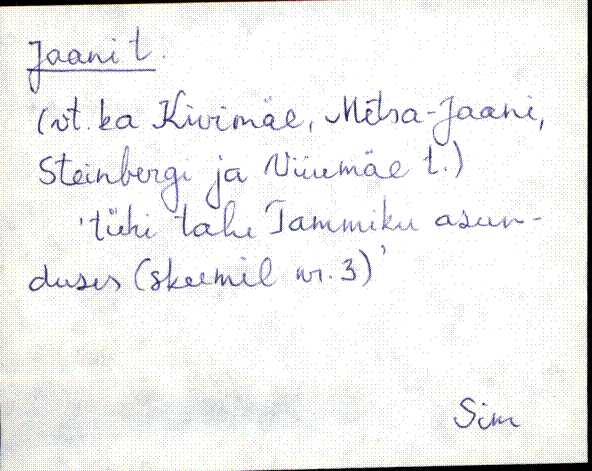 Jaani t.
(vt. ka Kivimäe, Metsa-Jaani,
Steinbergi ja Viiemäe t.)
'tühi talu Tammiku asun-
duses (skeemil nr. 3)'
Sim